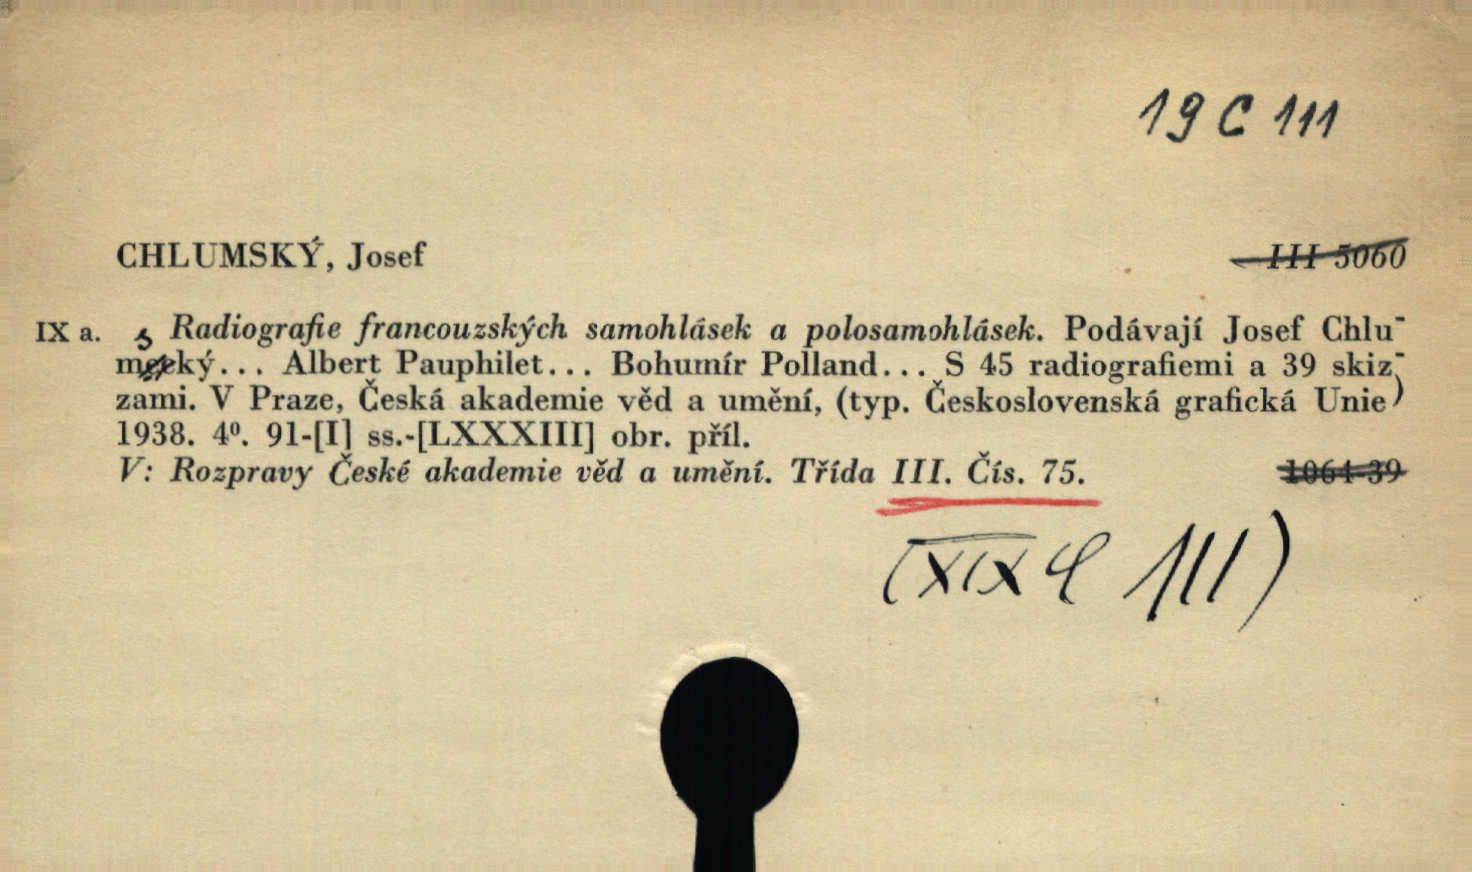 19 C 111
CHLUMSKÝ, Josef
III 5060
IX a. s Radiografie francouzských samohlásek a polosamohlásek. Podávají Josef Chlu-
mský... Albert Pauphilet... Bohumír Polland... S 45 radiografiemi a 39 skiz-
zami. V Praze, Česká akademie věd a umění, (typ. Československá grafická Unie)
1938. 4⁰. 91-[I] ss.-[LXXXIII] obr. příl.
V: Rozpravy České akademie věd a umění. Třída III. Čís. 75.
1064-39
(XIX C 111)